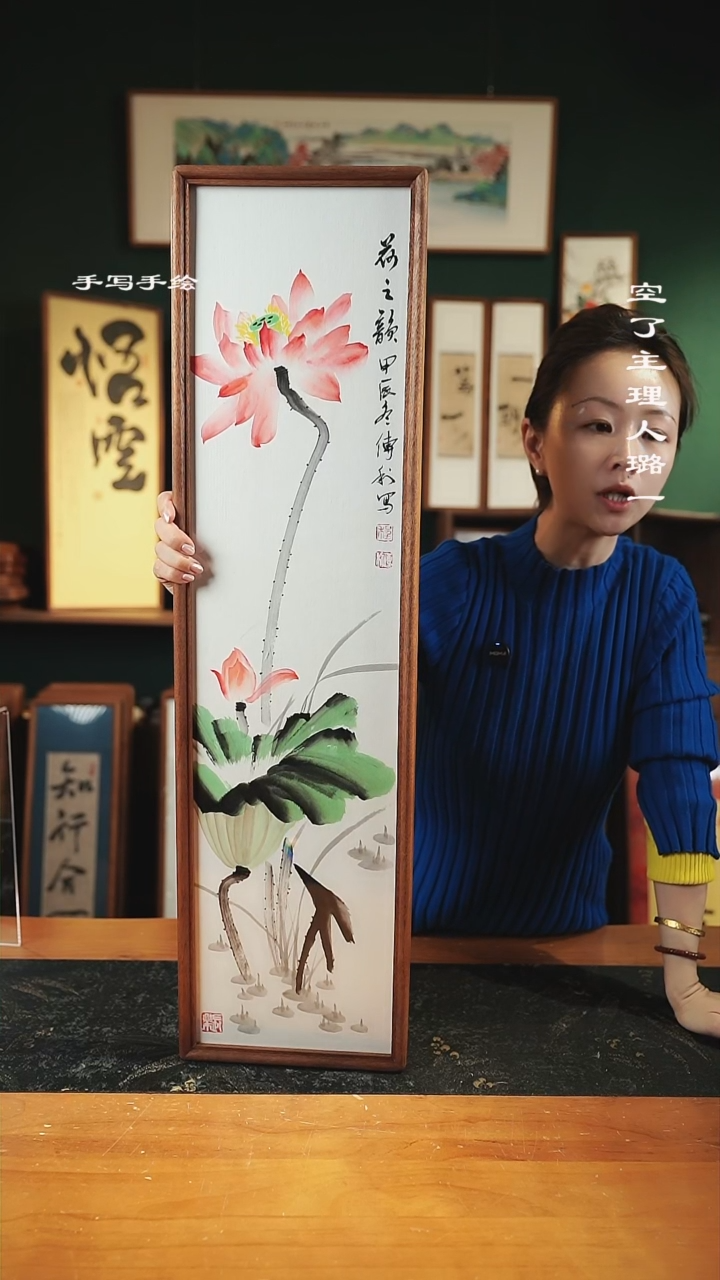 手写手绘
空了主理人璐一
荷之韵 甲辰冬伟利写
悟空
知行合一